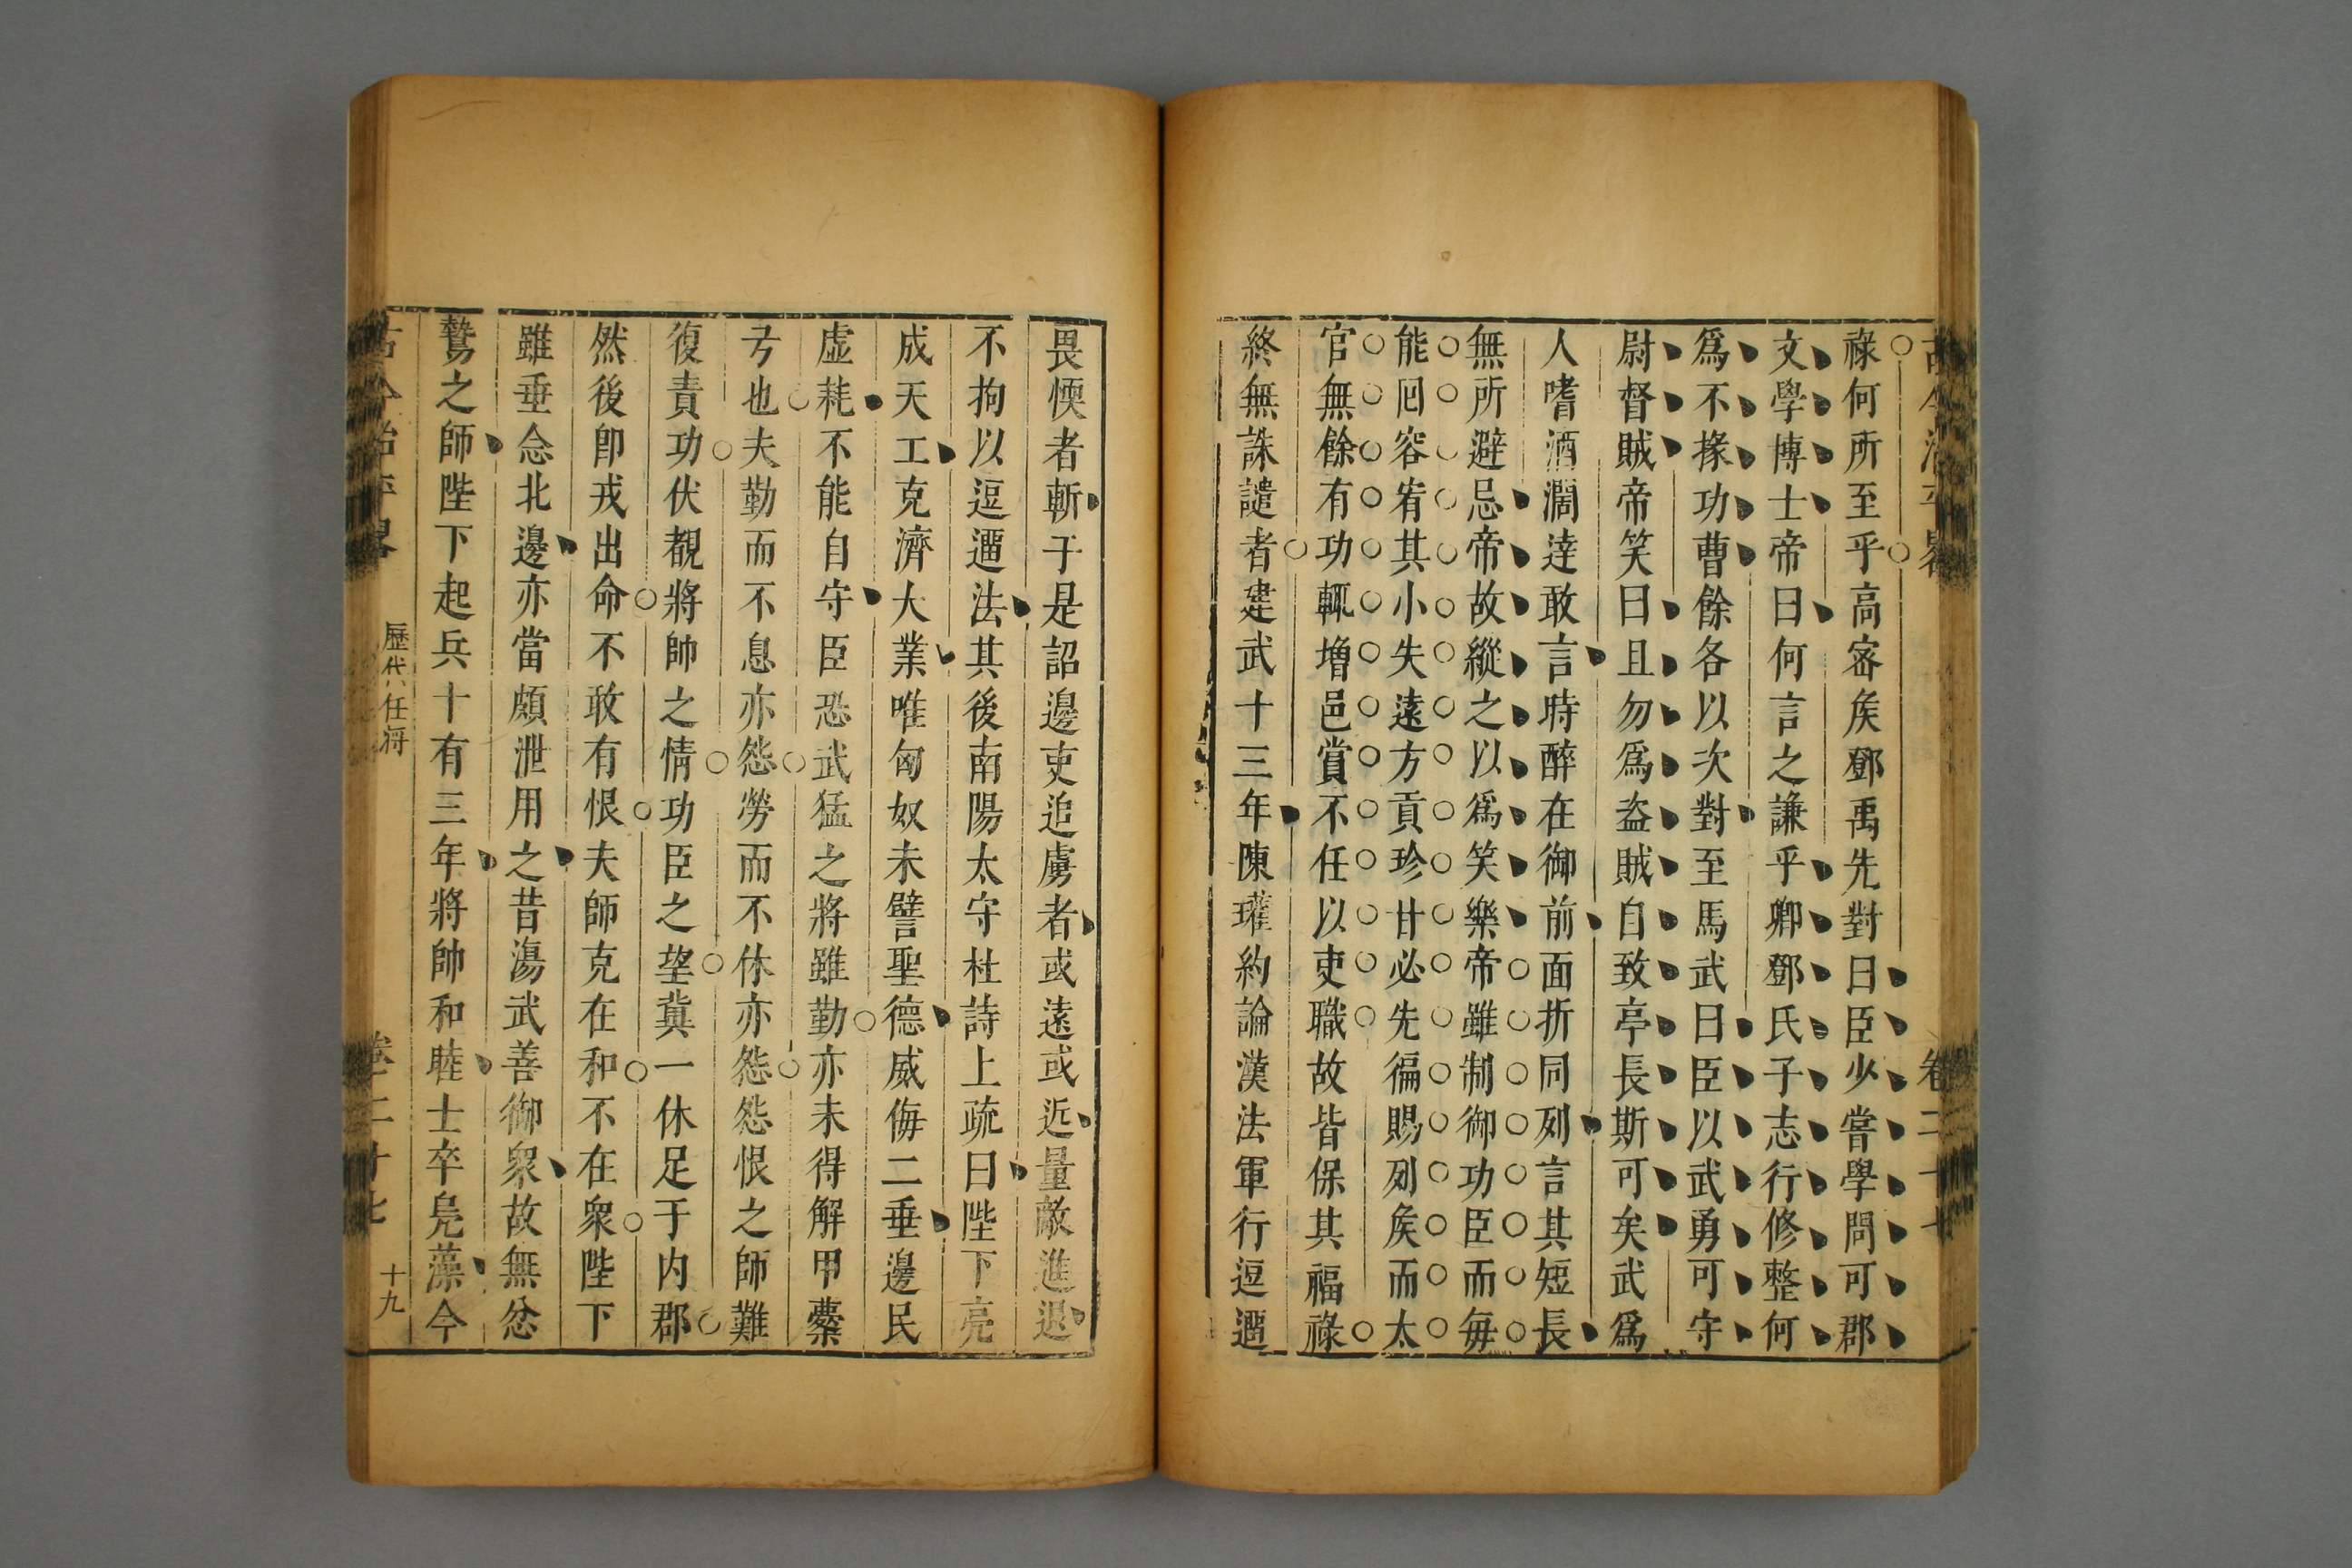 古今治平畧
卷二十七
祿何所至乎高宻矦鄧禹先對曰臣少嘗學問可郡
文學博士帝曰何言之謙乎卿鄧氏子志行修整何
爲不掾功曹餘各以次對至馬武曰臣以武勇可守
尉督賊帝笑曰且勿爲盗賊自致亭長斯可矣武爲
人嗜酒濶逹敢言時醉在御前面折同列言其短長
無所避忌帝故縱之以爲笑樂帝雖制御功臣而每
能囘容宥其小失遠方貢珍甘必先徧賜列矦而太
官無餘有功輒增邑賞不任以吏職故皆保其福祿
終無誅譴者建武十三年陳瓘約論漢法軍行逗遛
畏愞者斬于是詔邊吏追虜者或遠或近量敵進退
不拘以逗遛法其後南陽太守杜詩上疏曰陛下亮
成天工克濟大業唯匈奴未譬聖德威侮二垂邊民
虛耗不能自守臣恐武猛之將雖勤亦未得解甲櫜
弓也夫勤而不息亦怨勞而不休亦怨怨恨之師難
復責功伏覩將帥之情功臣之望冀一休足于内郡
然後卽戎出命不敢有恨夫師克在和不在衆陛下
雖垂念北邊亦當頗泄用之昔湯武善御衆故無忿
鷙之師陛下起兵十有三年將帥和睦士卒鳧藻今
古今治平畧
歷代任將
卷二十七
十九